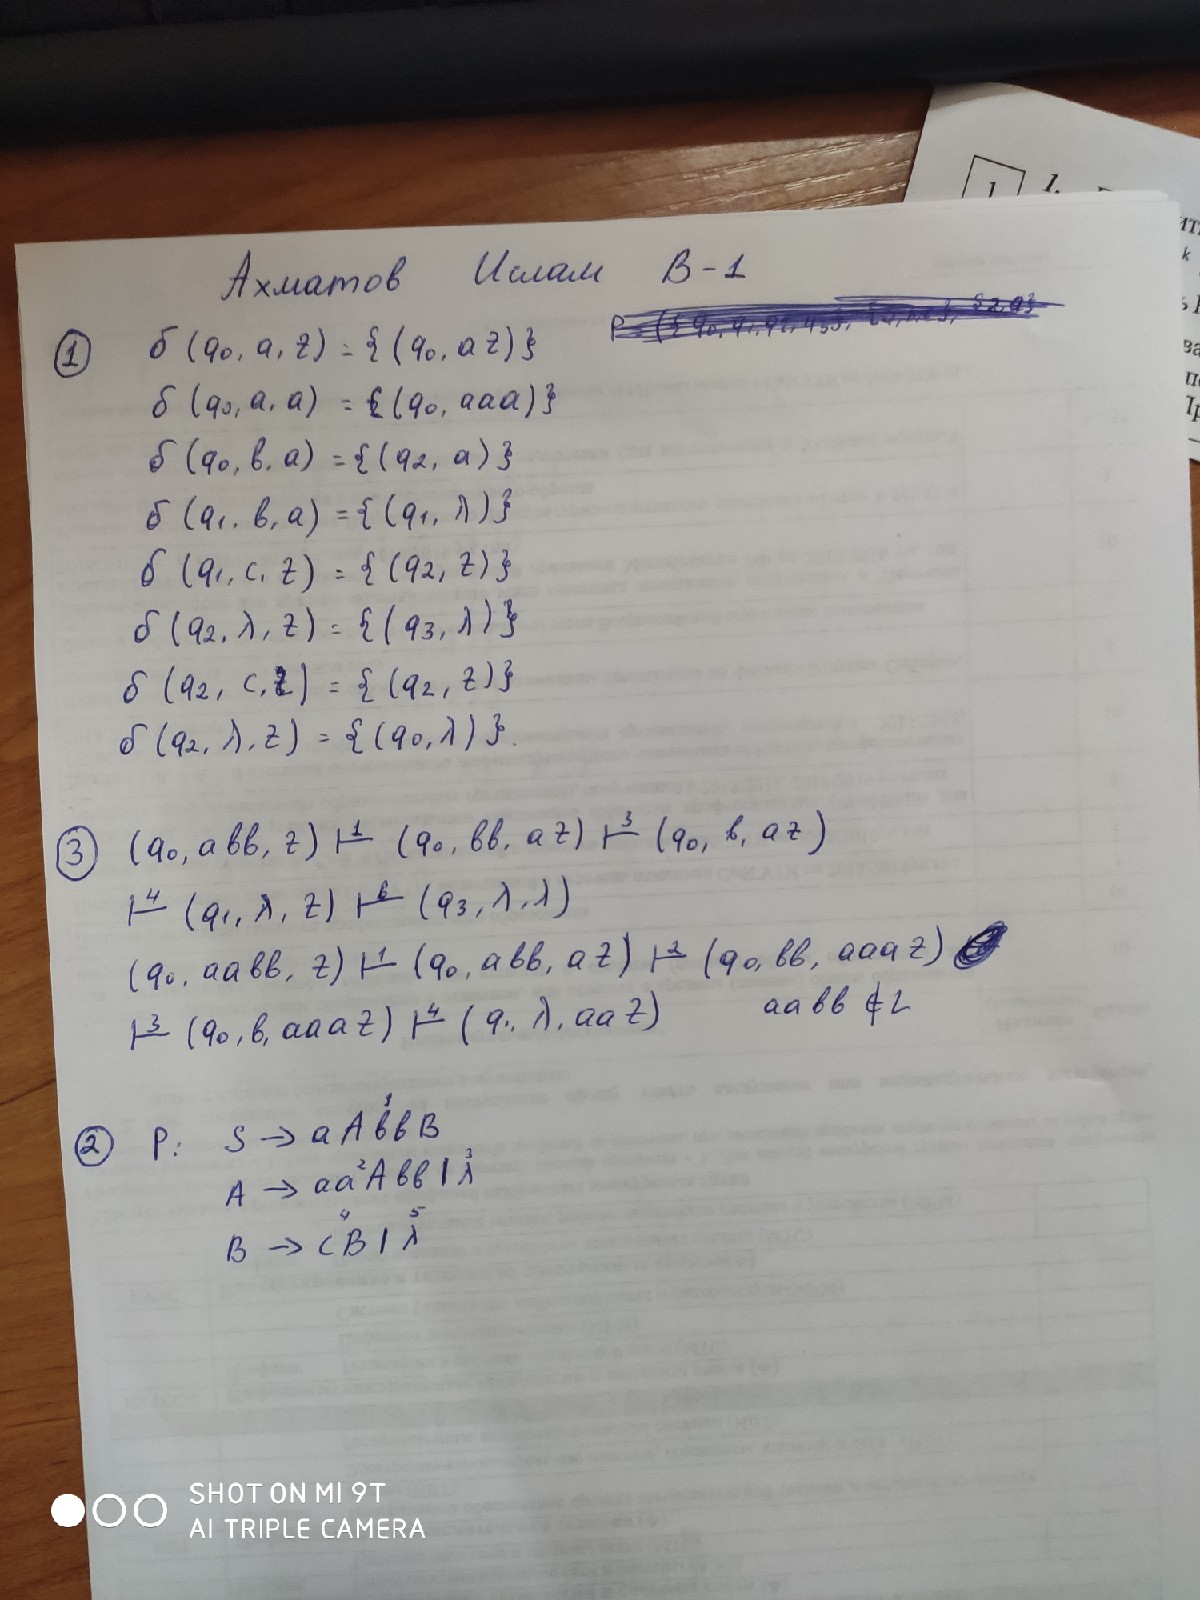 Ахматов Ислам В-1
① δ(q₀, a, z) = {(q₀, az)}
δ(q₀, a, a) = {(q₀, aaa)}
δ(q₀, в, a) = {(q₂, a)}
δ(q₁, в, a) = {(q₁, λ)}
δ(q₁, c, z) = {(q₂, z)}
δ(q₂, λ, z) = {(q₃, λ)}
δ(q₂, c, z) = {(q₂, z)}
δ(q₂, λ, z) = {(q₀, λ)}.
③ (q₀, aвв, z) ⊢¹ (q₀, вв, az) ⊢³ (q₀, в, az)
⊢⁴ (q₁, λ, z) ⊢⁶ (q₃, λ, λ)
(q₀, aaвв, z) ⊢¹ (q₀, aвв, az) ⊢² (q₀, вв, aaaz)
⊢³ (q₀, в, aaaz) ⊢⁴ (q₁, λ, aaz) aaвв ∉ L
② P: S → aAввB
A → aaAвв | λ
B → cB | λ
SHOT ON MI 9T
AI TRIPLE CAMERA